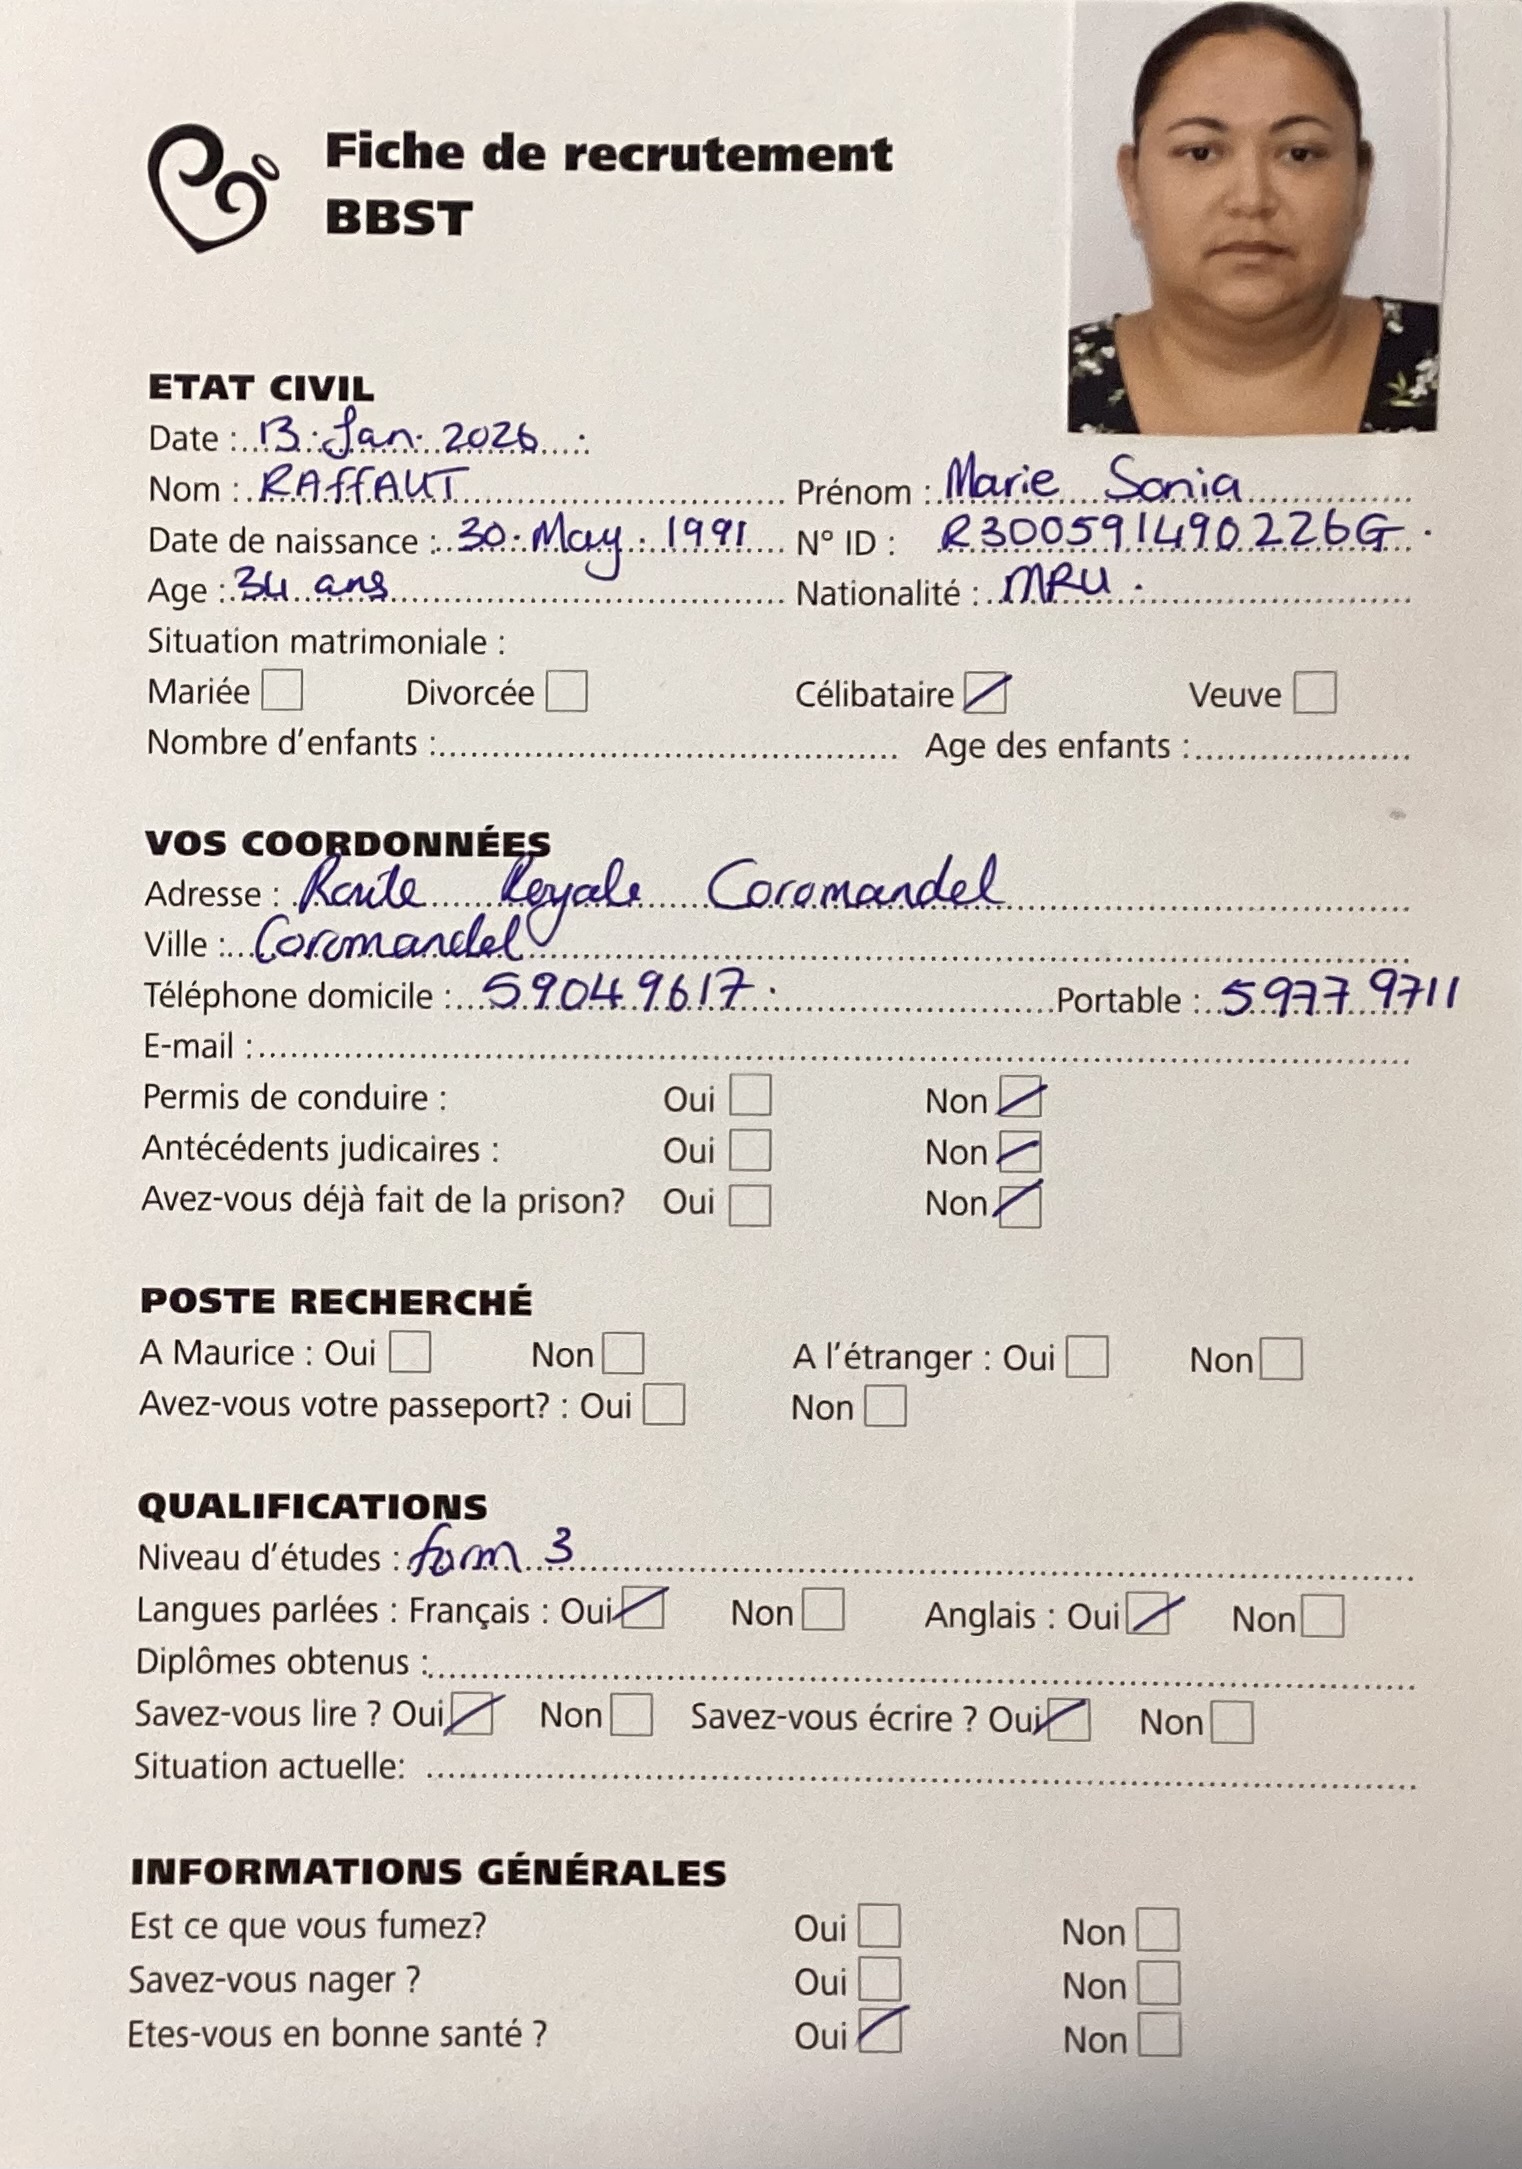 Fiche de recrutement
BBST
ETAT CIVIL
Date : 13 Jan 2026
Nom : RAffAUT Prénom : Marie Sonia
Date de naissance : 30 May 1991 N° ID : R300591490226G
Age : 34 ans Nationalité : MRU
Situation matrimoniale :
Mariée Divorcée Célibataire Veuve
Nombre d'enfants : Age des enfants :
VOS COORDONNÉES
Adresse : Route Royale Coromandel
Ville : Coromandel
Téléphone domicile : 59049617 Portable : 5977 9711
E-mail :
Permis de conduire : Oui Non
Antécédents judicaires : Oui Non
Avez-vous déjà fait de la prison? Oui Non
POSTE RECHERCHÉ
A Maurice : Oui Non A l'étranger : Oui Non
Avez-vous votre passeport? : Oui Non
QUALIFICATIONS
Niveau d'études : form 3
Langues parlées : Français : Oui Non Anglais : Oui Non
Diplômes obtenus :
Savez-vous lire ? Oui Non Savez-vous écrire ? Oui Non
Situation actuelle:
INFORMATIONS GÉNÉRALES
Est ce que vous fumez? Oui Non
Savez-vous nager ? Oui Non
Etes-vous en bonne santé ? Oui Non